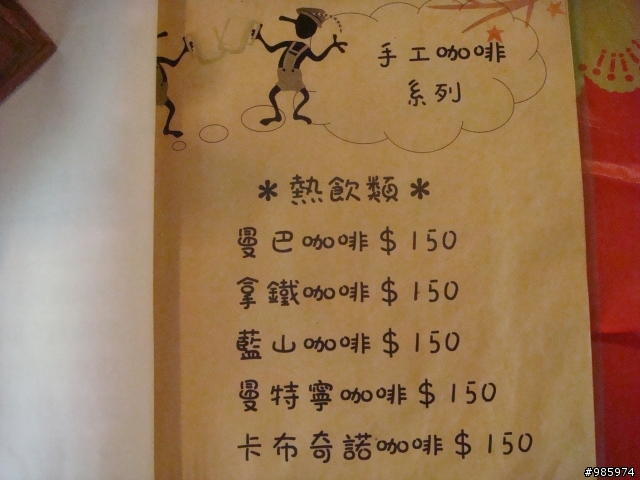 手工咖啡
系列
*熱飲類*
曼巴咖啡$150
拿鐵咖啡$150
藍山咖啡$150
曼特寧咖啡$150
卡布奇諾咖啡$150
#985974